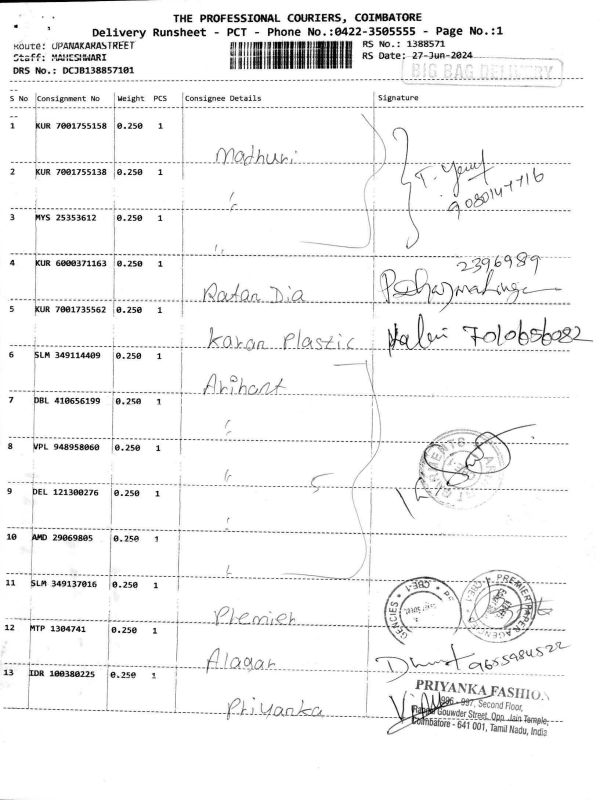 THE PROFESSIONAL COURIERS, COIMBATORE
Delivery Runsheet - PCT - Phone No.:0422-3505555 - Page No.:1
Route: UPANAKARASTREET
RS No.: 1388571
Staff: MAHESHWARI
RS Date: 27-Jun-2024
DRS No.: DCJB138857101
BIG BAG DELIVERY
S No Consignment No Weight PCS Consignee Details Signature
1 KUR 7001755158 0.250 1 Madhuri
2 KUR 7001755138 0.250 1 "
3 MYS 25353612 0.250 1 "
4 KUR 6000371163 0.250 1 Ratan Dia 2396989
5 KUR 7001735562 0.250 1 Karan Plastic 7010656082
6 SLM 349114409 0.250 1 Arihant
7 DBL 410656199 0.250 1 "
8 VPL 948958060 0.250 1 "
5
9 DEL 121300276 0.250 1 "
10 AMD 29069805 0.250 1 "
11 SLM 349137016 0.250 1 Premier
PREMIER PAPER AGENCIES CBE-1
12 MTP 1304741 0.250 1 Alagar 9655984522
13 IDR 100380225 0.250 1 Priyanka
PRIYANKA FASHION
996 - 997, Second Floor,
Gouwder Street, Opp. Jain Temple,
Coimbatore - 641 001, Tamil Nadu, India